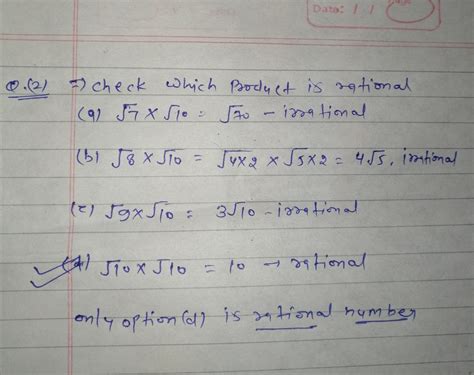 Date: / /
Q.(2) => Check which Product is rational
(a) √7 × √10 = √70 - irrational
(b) √8 × √10 = √4×2 × √5×2 = 4√5, irrational
(c) √9 × √10 = 3√10 - irrational
(d) √10 × √10 = 10 → rational
only option (d) is rational number